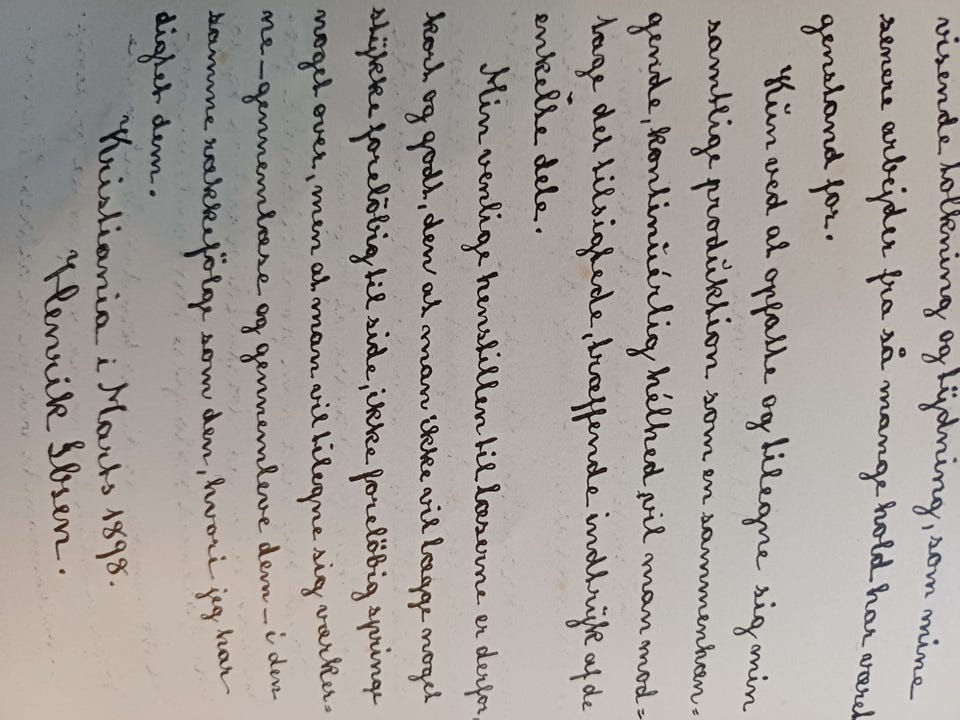 visende tolkning og tÿdning, som mine
senere arbejder fra så mange hold har været
genstand for.
Kŭn ved at opfatte og tilegne sig min
samtlige prodŭktion som en sammenhæn=
gende, kontinŭérlig hélhed, vil man mod=
tage det tilsigtede, træffende indtrÿk af de
enkelte dele.
Min venlige henstillen til læserne er derfor,
kort og godt, den at man ikke vil lægge noget
stÿkke foreløbig til side, ikke foreløbig springe
noget over, men at man vil tilegne sig værker=
ne – gennemlæse og gennemleve dem – i den
samme rækkefølge som den, hvori jeg har
digtet dem.
Kristiania i Marts 1898.
Henrik Ibsen.